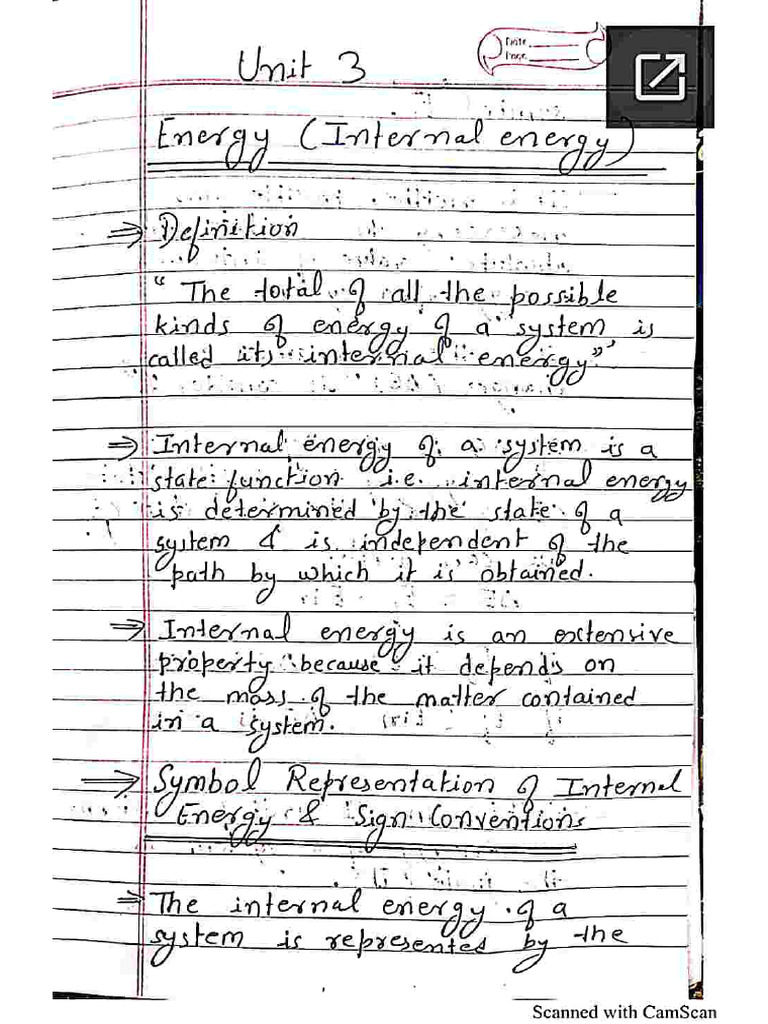 Unit 3
Date
Page
Energy (Internal energy)
⇒ Definition
"The total of all the possible
kinds of energy of a system is
called its internal energy"
⇒ Internal energy of a system is a
state function i.e. internal energy
is determined by the state of a
system & is independent of the
path by which it is obtained.
⇒ Internal energy is an extensive
property because it depends on
the mass of the matter contained
in a system.
⇒ Symbol Representation of Internal
Energy & Sign Conventions
⇒ The internal energy of a
system is represented by the
Scanned with CamScan